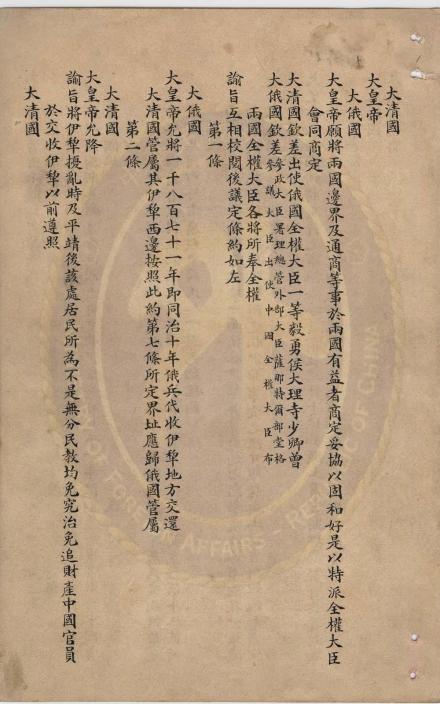 大清國
大皇帝
大俄國
大皇帝願將兩國邊界及通商等事於兩國有益者商定妥協以固和好是以特派全權大臣
會同商定
大清國欽差出使俄國全權大臣一等毅勇侯大理寺少卿曾
大俄國欽差參政大臣署理總管外部大臣薩那特爾部堂格
參議大臣出使中國全權大臣布
兩國全權大臣各將所奉全權
諭旨互相校閱後議定條約如左
第一條
大俄國
大皇帝允將一千八百七十一年即同治十年俄兵代收伊犂地方交還
大清國管屬其伊犂西邊按照此約第七條所定界址應歸俄國管屬
第二條
大清國
大皇帝允降
諭旨將伊犂擾亂時及平靖後該處居民所為不是無分民教均免究治免追財產中國官員
於交收伊犂以前遵照
大清國
FOREIGN AFFAIRS REPUBLIC OF